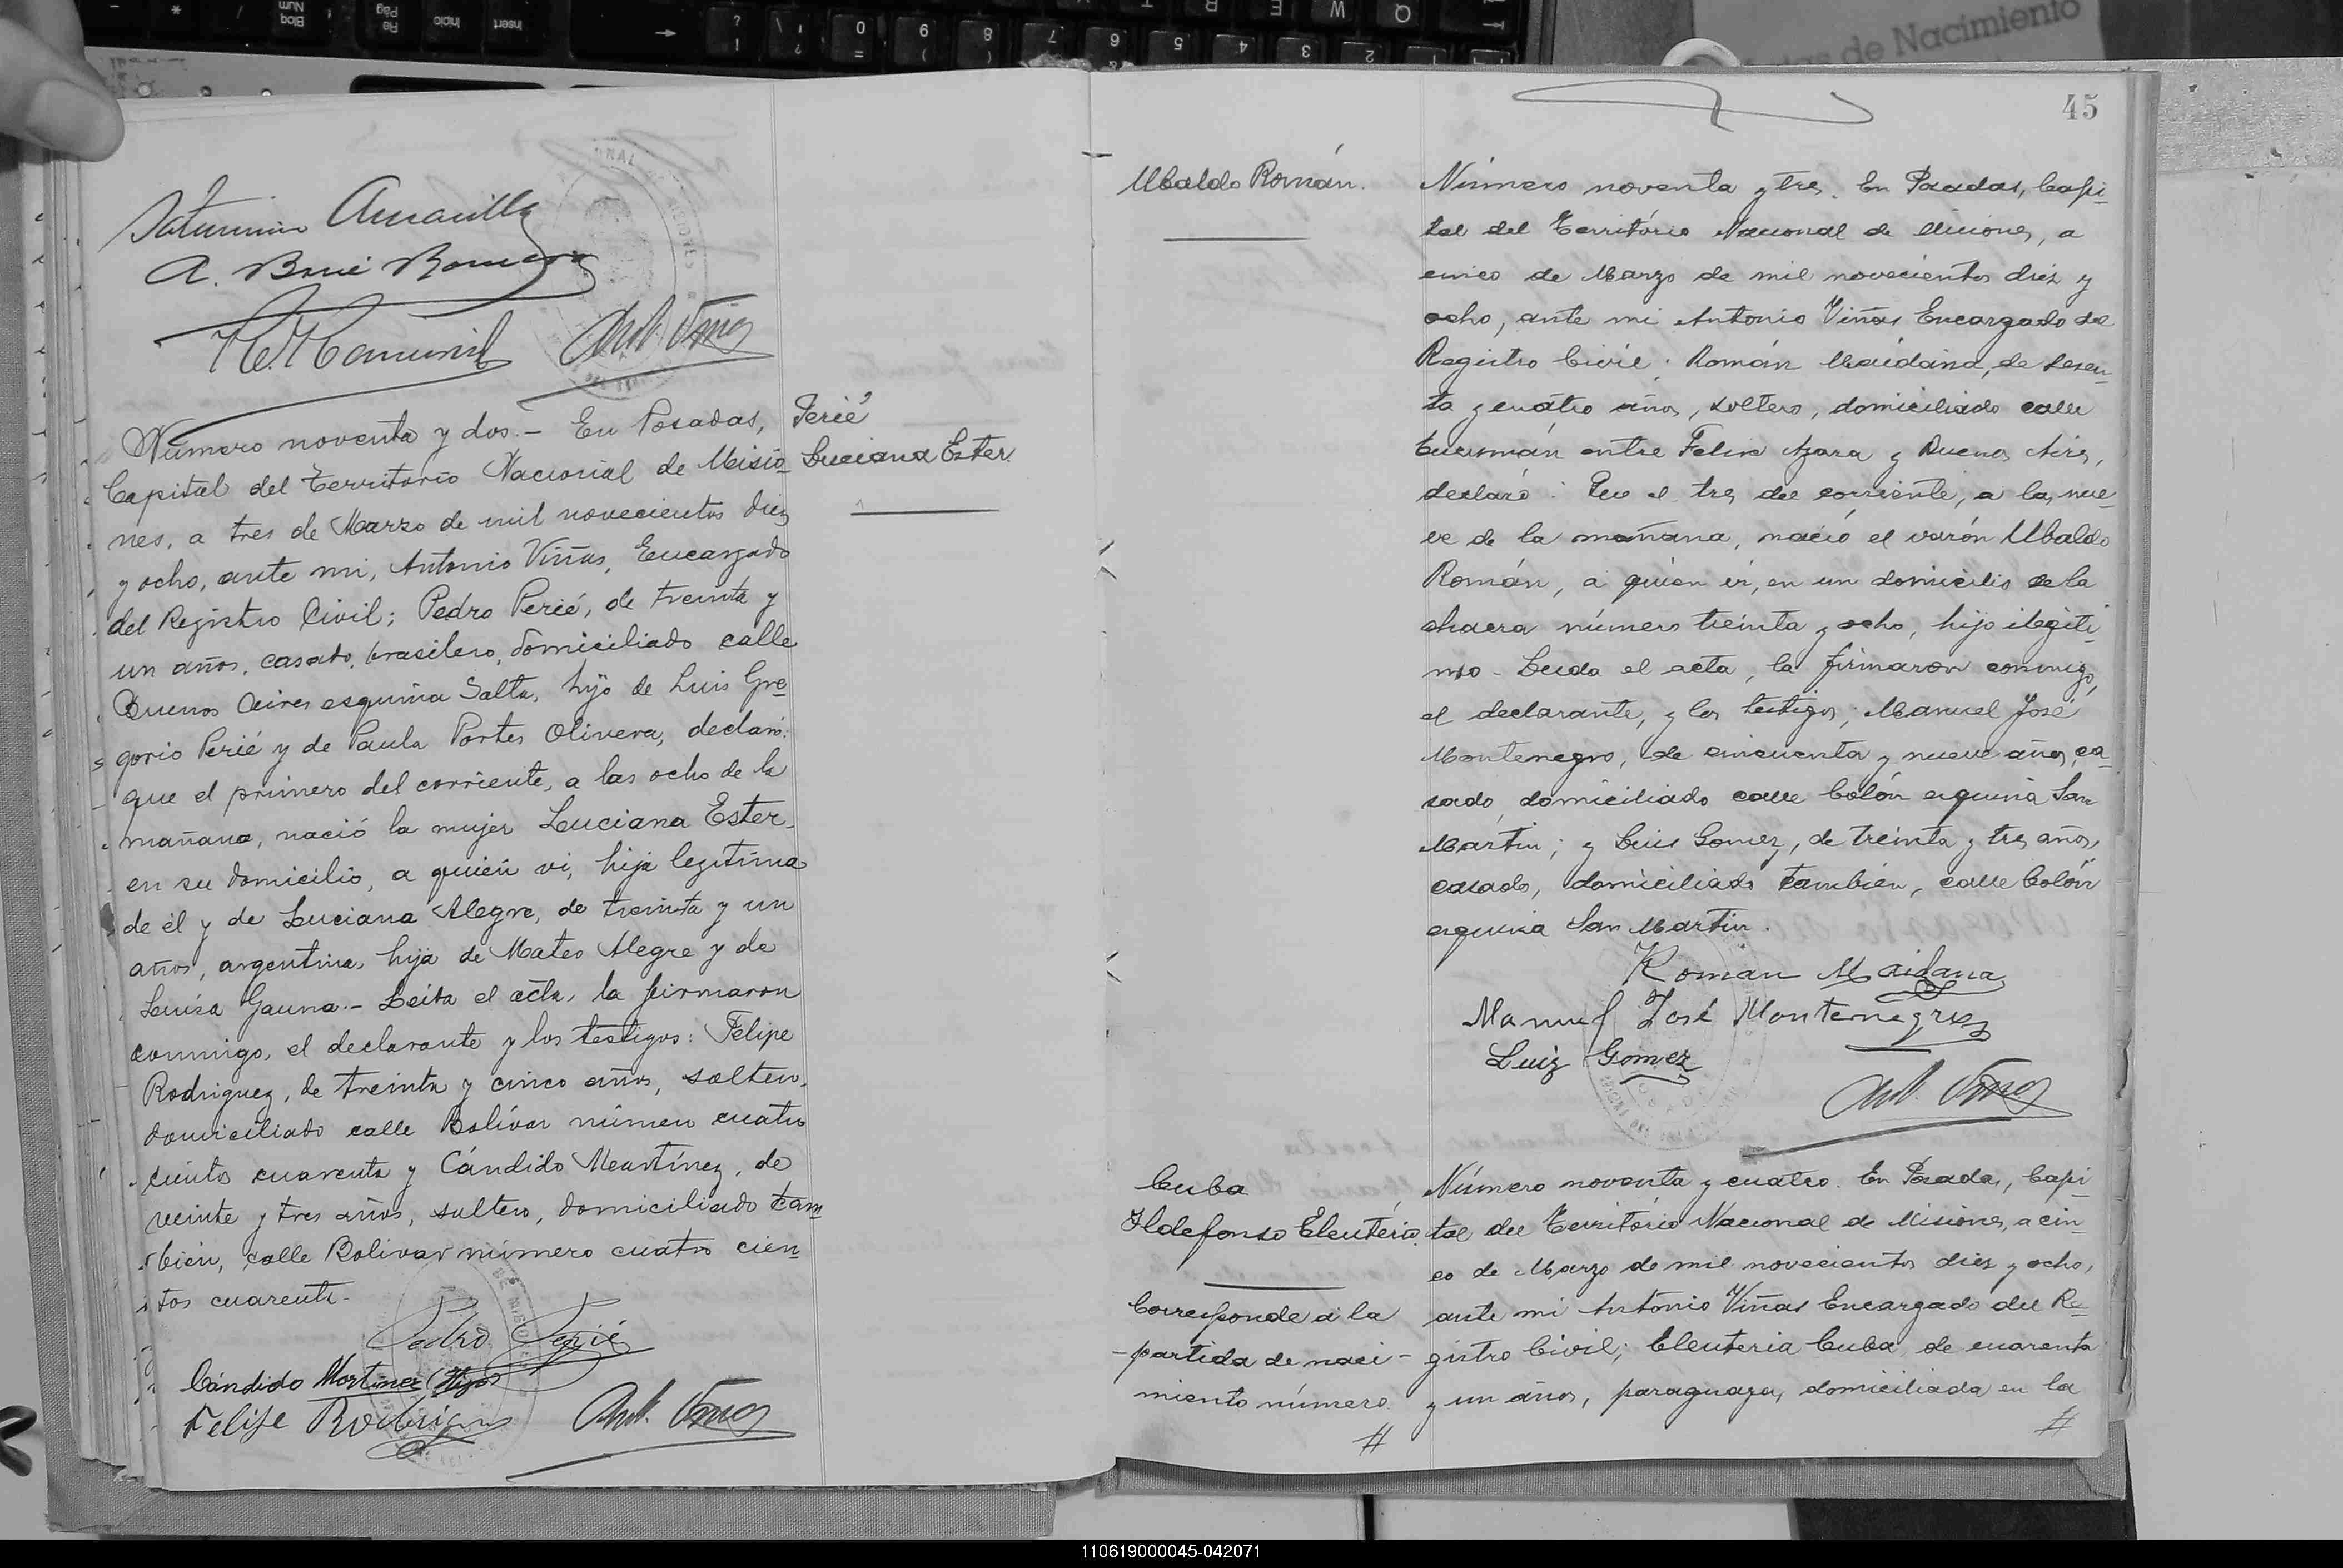 Saturnino Amarilla
A. Boné Romero
Número noventa y dos.- En Posadas,
Capital del Territorio Nacional de Misio-
nes, a tres de Marzo de mil novecientos diez
y ocho, ante mi, Antonio Viñas, Encargado
del Registro Civil; Pedro Perié, de treinta y
un años, casado, brasilero, domiciliado calle
Buenos Aires esquina Salta, hijo de Luis Gre-
gorio Perié y de Paula Portes Olivera, declaró:
que el primero del corriente, a las ocho de la
mañana, nació la mujer Luciana Ester-
en su domicilio, a quien vi, hija legitima
de él y de Luciana Alegre, de treinta y un
años, argentina, hija de Mateo Alegre y de
Luisa Gauna.- Leida el acta, la firmaron
conmigo, el declarante y los testigos: Felipe
Rodriguez, de treinta y cinco años, soltero,
domiciliado calle Bolívar número cuatro
cientos cuarenta y Cándido Martínez, de
veinte y tres años, soltero, domiciliado tam-
bién, calle Bolivar número cuatro cien-
tos cuarenta.-
Pedro Perié
Cándido Martinez (Hijo)
Felipe Rodriguez
Ant. Viñas
Perié
Luciana Ester.
45
Ubaldo Román.
Número noventa y tres. En Posadas, Capi-
tal del Territorio Nacional de Misiones, a
cinco de Marzo de mil novecientos diez y
ocho, ante mi Antonio Viñas Encargado del
Registro Civil; Román Maidana, de sesen-
ta y cuatro años, soltero, domiciliado calle
Tucumán entre Felix Azara y Buenos Aires,
declaró: Que el tres del corriente, a las nue-
ve de la mañana, nació el varón Ubaldo
Román, a quien vi, en un domicilio de la
chacra número treinta y ocho, hijo ilegiti
mo. Leida el acta, la firmaron conmigo,
el declarante, y los testigos; Manuel José
Montenegro, de cincuenta y nueve años, ca-
sado, domiciliado calle Colón esquina San
Martin; y Luis Gomez, de treinta y tres años,
casado, domiciliado también, calle Colón
esquina San Martin.
Roman Maidana
Manuel José Montenegro
Luiz Gomez
Ant. Viñas
Cuba
Ildefonso Eleutério.
Corresponde a la
-partida de naci-
miento número
#
Número noventa y cuatro. En Posadas, Capi-
tal del Territorio Nacional de Misiones, a cin-
co de Marzo de mil novecientos diez y ocho,
ante mi Antonio Viñas Encargado del Re-
gistro Civil; Eleuteria Cuba, de cuarenta
y un años, paraguaya, domiciliada en la
#
110619000045-042071